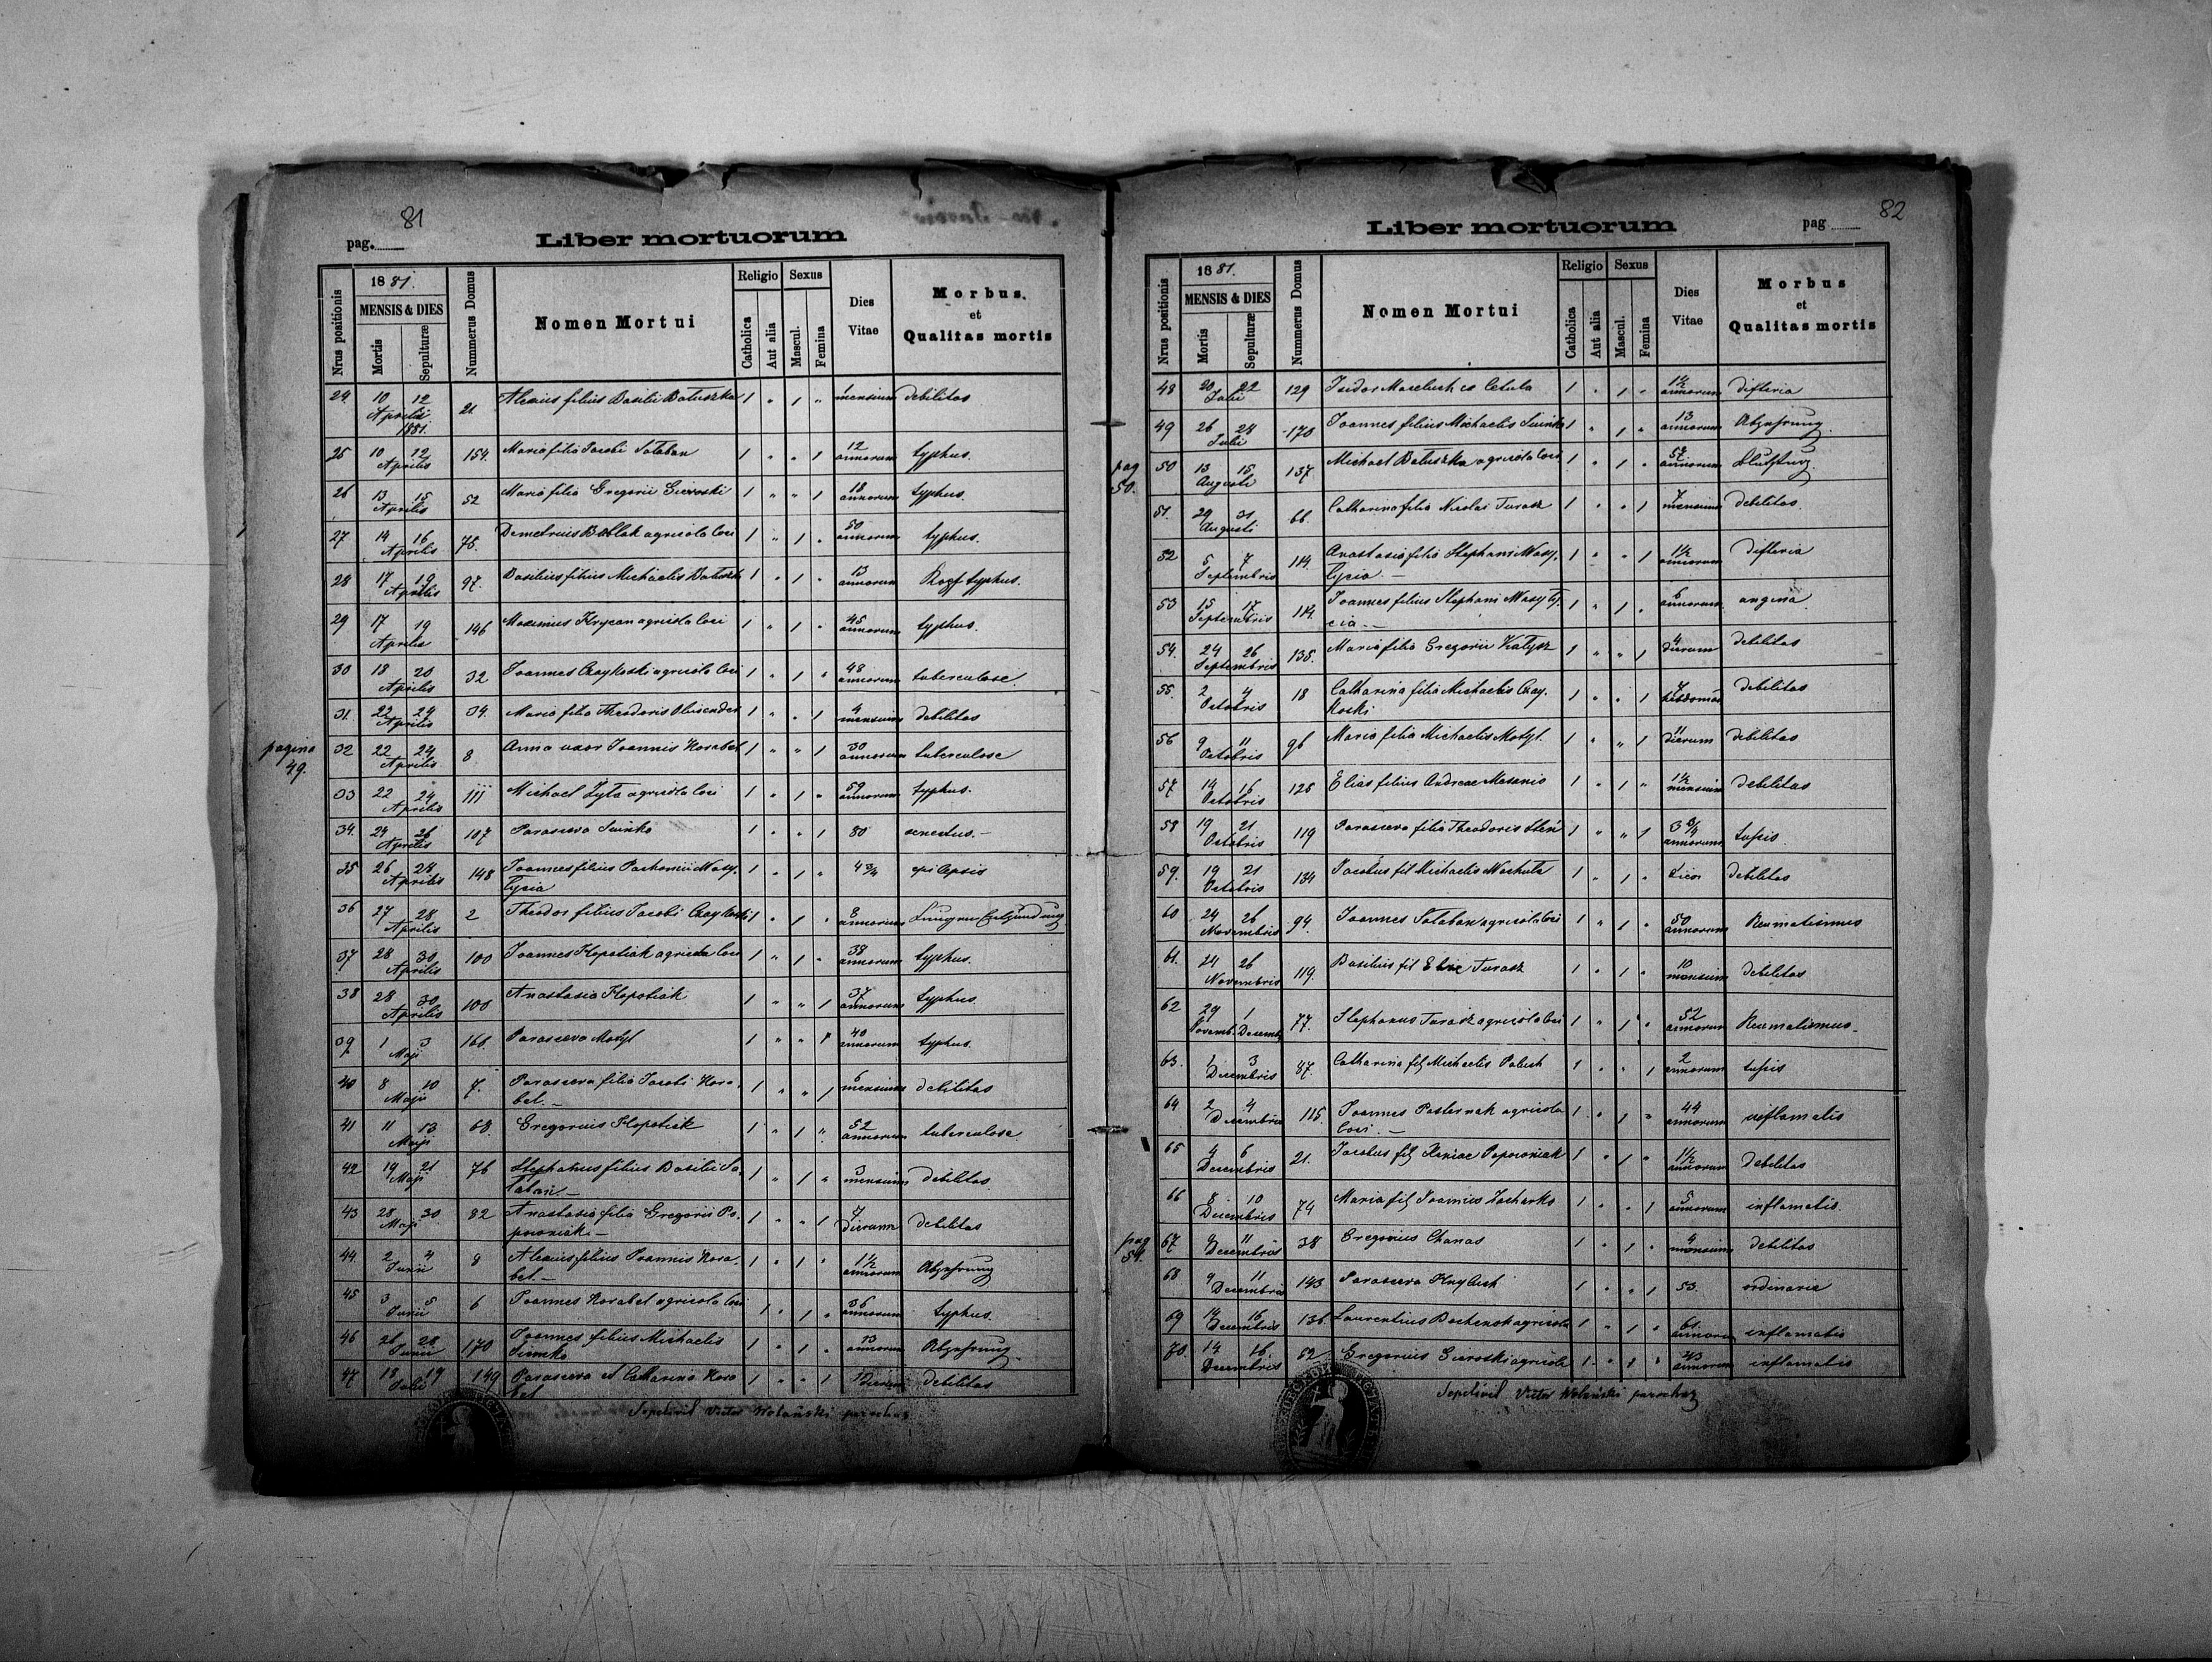 81
pag.
Liber mortuorum
Nrus positionis
1881.
MENSIS & DIES
Mortis
Sepulturæ
Nummerus Domus
Nomen Mortui
Religio
Catholica
Aut alia
Sexus
Mascul.
Femina
Dies
Vitae
Morbus.
et
Qualitas mortis
24 10 12 Aprilis 1881. 21 Alexius filius Basilii Batuszka 1 " 1 " mensium debilitas
25 10 12 Aprilis 154. Maria filia Jacobi Sataban 1 " " 1 12 annorum typhus.
26 13 15 Aprilis 52 Maria filia Gregorii 1 " " 1 18 annorum typhus.
27 14 16 Aprilis 78. Demetrius Bablak agricola loci 1 " 1 " 50 annorum typhus.
28 17 19 Aprilis 97. Basilius filius Michaelis 1 " 1 " 13 annorum Kopf typhus.
29 17 19 Aprilis 146 Maximus Hrycan agricola loci 1 " 1 " 45 annorum typhus.
30 18 20 Aprilis 32 Joannes Czaykoski agricola loci 1 " 1 " 48 annorum tuberculose.
31. 22 24 Aprilis 34. Maria filia Theodoris 1 " " 1 4 mensium debilitas
pagina 49.
32 22 24 Aprilis 8 Anna uxor Joannis Korabel 1 " " 1 30 annorum tuberculose
33 22 24 Aprilis 111 Michael Zyta agricola loci 1 " 1 " 59 annorum typhus.
34. 24 26 Aprilis 107 Parasceva Suinko 1 " " 1 80 senectus.-
35 26 28 Aprilis 148 Joannes filius Pachomii Wasy-
lycia 1 " 1 " 4 3/4 epilepsis
36 27 28 Aprilis 2 Theodor filius Jacobi Czaykoski 1 " 1 " 8 annorum Lungen Entzündung
37 28 30 Aprilis 100 Joannes Klopotiak agricola loci 1 " 1 " 38 annorum typhus.
38 28 30 Aprilis 100 Anastasia Klopotiak 1 " " 1 37 annorum typhus.
39 1 3 Maji 168. Parasceva Motyl 1 " " 1 40 annorum typhus.
40 8 10 Maji 7. Parasceva filia Jacobi Kora-
bel.- 1 " " 1 6 mensium debilitas
41 11 13 Maji 68. Gregorius Klopotiak 1 " 1 " 52 annorum tuberculose
42 19 21 Maji 76 Stephanus filius Basilii Sa-
taban 1 " 1 " 3 mensium debilitas
43 28 30 Maji 82 Anastasia filia Gregorii Po-
poroniak.- 1 " " 1 4 Dierum debilitas
44. 2 4 Junii 8 Alexius filius Joannis Kora-
bel.- 1 " 1 " 1 1/2 annorum Abzehrung
45 3 5 Junii 6 Joannes Korabel agricola loci 1 " 1 " 36 annorum typhus.
46 26 28 Junii 170 Joannes filius Michaelis
Suinko 1 " 1 " 13 annorum Abzehrung.
47 18 19 Julii 149 Parasceva et Catharina Kora
bel 1 " " 1 1 Dierum debilitas
Sepelivit Victor Wolański parochus
82
Liber mortuorum
pag
Nrus positionis
1881.
MENSIS & DIES
Mortis
Sepulturæ
Nummerus Domus
Nomen Mortui
Religio
Catholica
Aut alia
Sexus
Mascul.
Femina
Dies
Vitae
Morbus
et
Qualitas mortis
48 20 22 Julii 129 Isidor 1 " 1 " 1 1/2 annorum difteria
49 26 28 Julii 170 Joannes filius Michaelis Suinko 1 " 1 " 13 annorum Abzehrung.
pag 50.
50 13 15 Augusti 137 Michael Batuszka agricola loci 1 " 1 " 52 annorum Blutsturz.
51. 29 31 Augusti 66. Catharina filia Nicolai Turasz 1 " " 1 7 mensium debilitas.
52 5 7 Septembris 114. Anastasia filia Stephani Wasy-
lycia.- 1 " " 1 1 1/2 annorum difteria
53 15 17 Septembris 114. Joannes filius Stephani Wasyly-
cia.- 1 " 1 " 6 annorum angina
54. 24 26 Septembris 138. Maria filia Gregorii 1 " " 1 4 dierum debilitas
55. 2 4 Octobris 18 Catharina filia Michaelis Czay-
koski 1 " " 1 7 debilitas
56 9 11 Octobris 96 Maria filia Michaelis Motyl. 1 " " 1 11 dierum debilitas
57 14 16 Octobris 128 Elias filius Andreae 1 " 1 " 1 1/2 mensium debilitas
58 19 21 Octobris 119 Parasceva filia Theodoris 1 " " 1 3 3/4 annorum tussis.
59. 19 21 Octobris 134 Jacobus fil Michaelis 1 " 1 " debilitas
60 24 26 Novembris 94. Joannes Sataban agricola loci 1 " 1 " 50 annorum Reumatismus
61. 24 26 Novembris 119. Basilius fil Eliae Turasz 1 " 1 " 10 mensium debilitas
62 29 1 Novemb. Decemb. 77. Stephanus Turasz agricola loci 1 " 1 " 52 annorum Reumatismus.
63. 1 3 Decembris 87. Catharina fil Michaelis 1 " " 1 2 annorum tussis
64 2 4 Decembris 115. Joannes Pasternak agricola
loci.- 1 " 1 " 44 annorum inflamatis
65 4 6 Decembris 21. Jacobus fil Poporoniak 1 " 1 " 1 1/2 annorum debilitas
66 8 10 Decembris 74 Maria fil Joannis 1 " " 1 5 annorum inflamatis.
pag 51.
67. 9 11 Decembris 38 Gregorius Chanas 1 " 1 " 4 mensium debilitas
68 9 11 Decembris 143 Parasceva 1 " " 1 53. ordinaria
69 14 16 Decembris 136. Laurentius agricola 1 " 1 " 61. annorum inflamatis
70. 14 16. Decembris 52 Gregorius agricola 1 " 1 " annorum inflamatis
Sepelivit Victor Wolański parochus